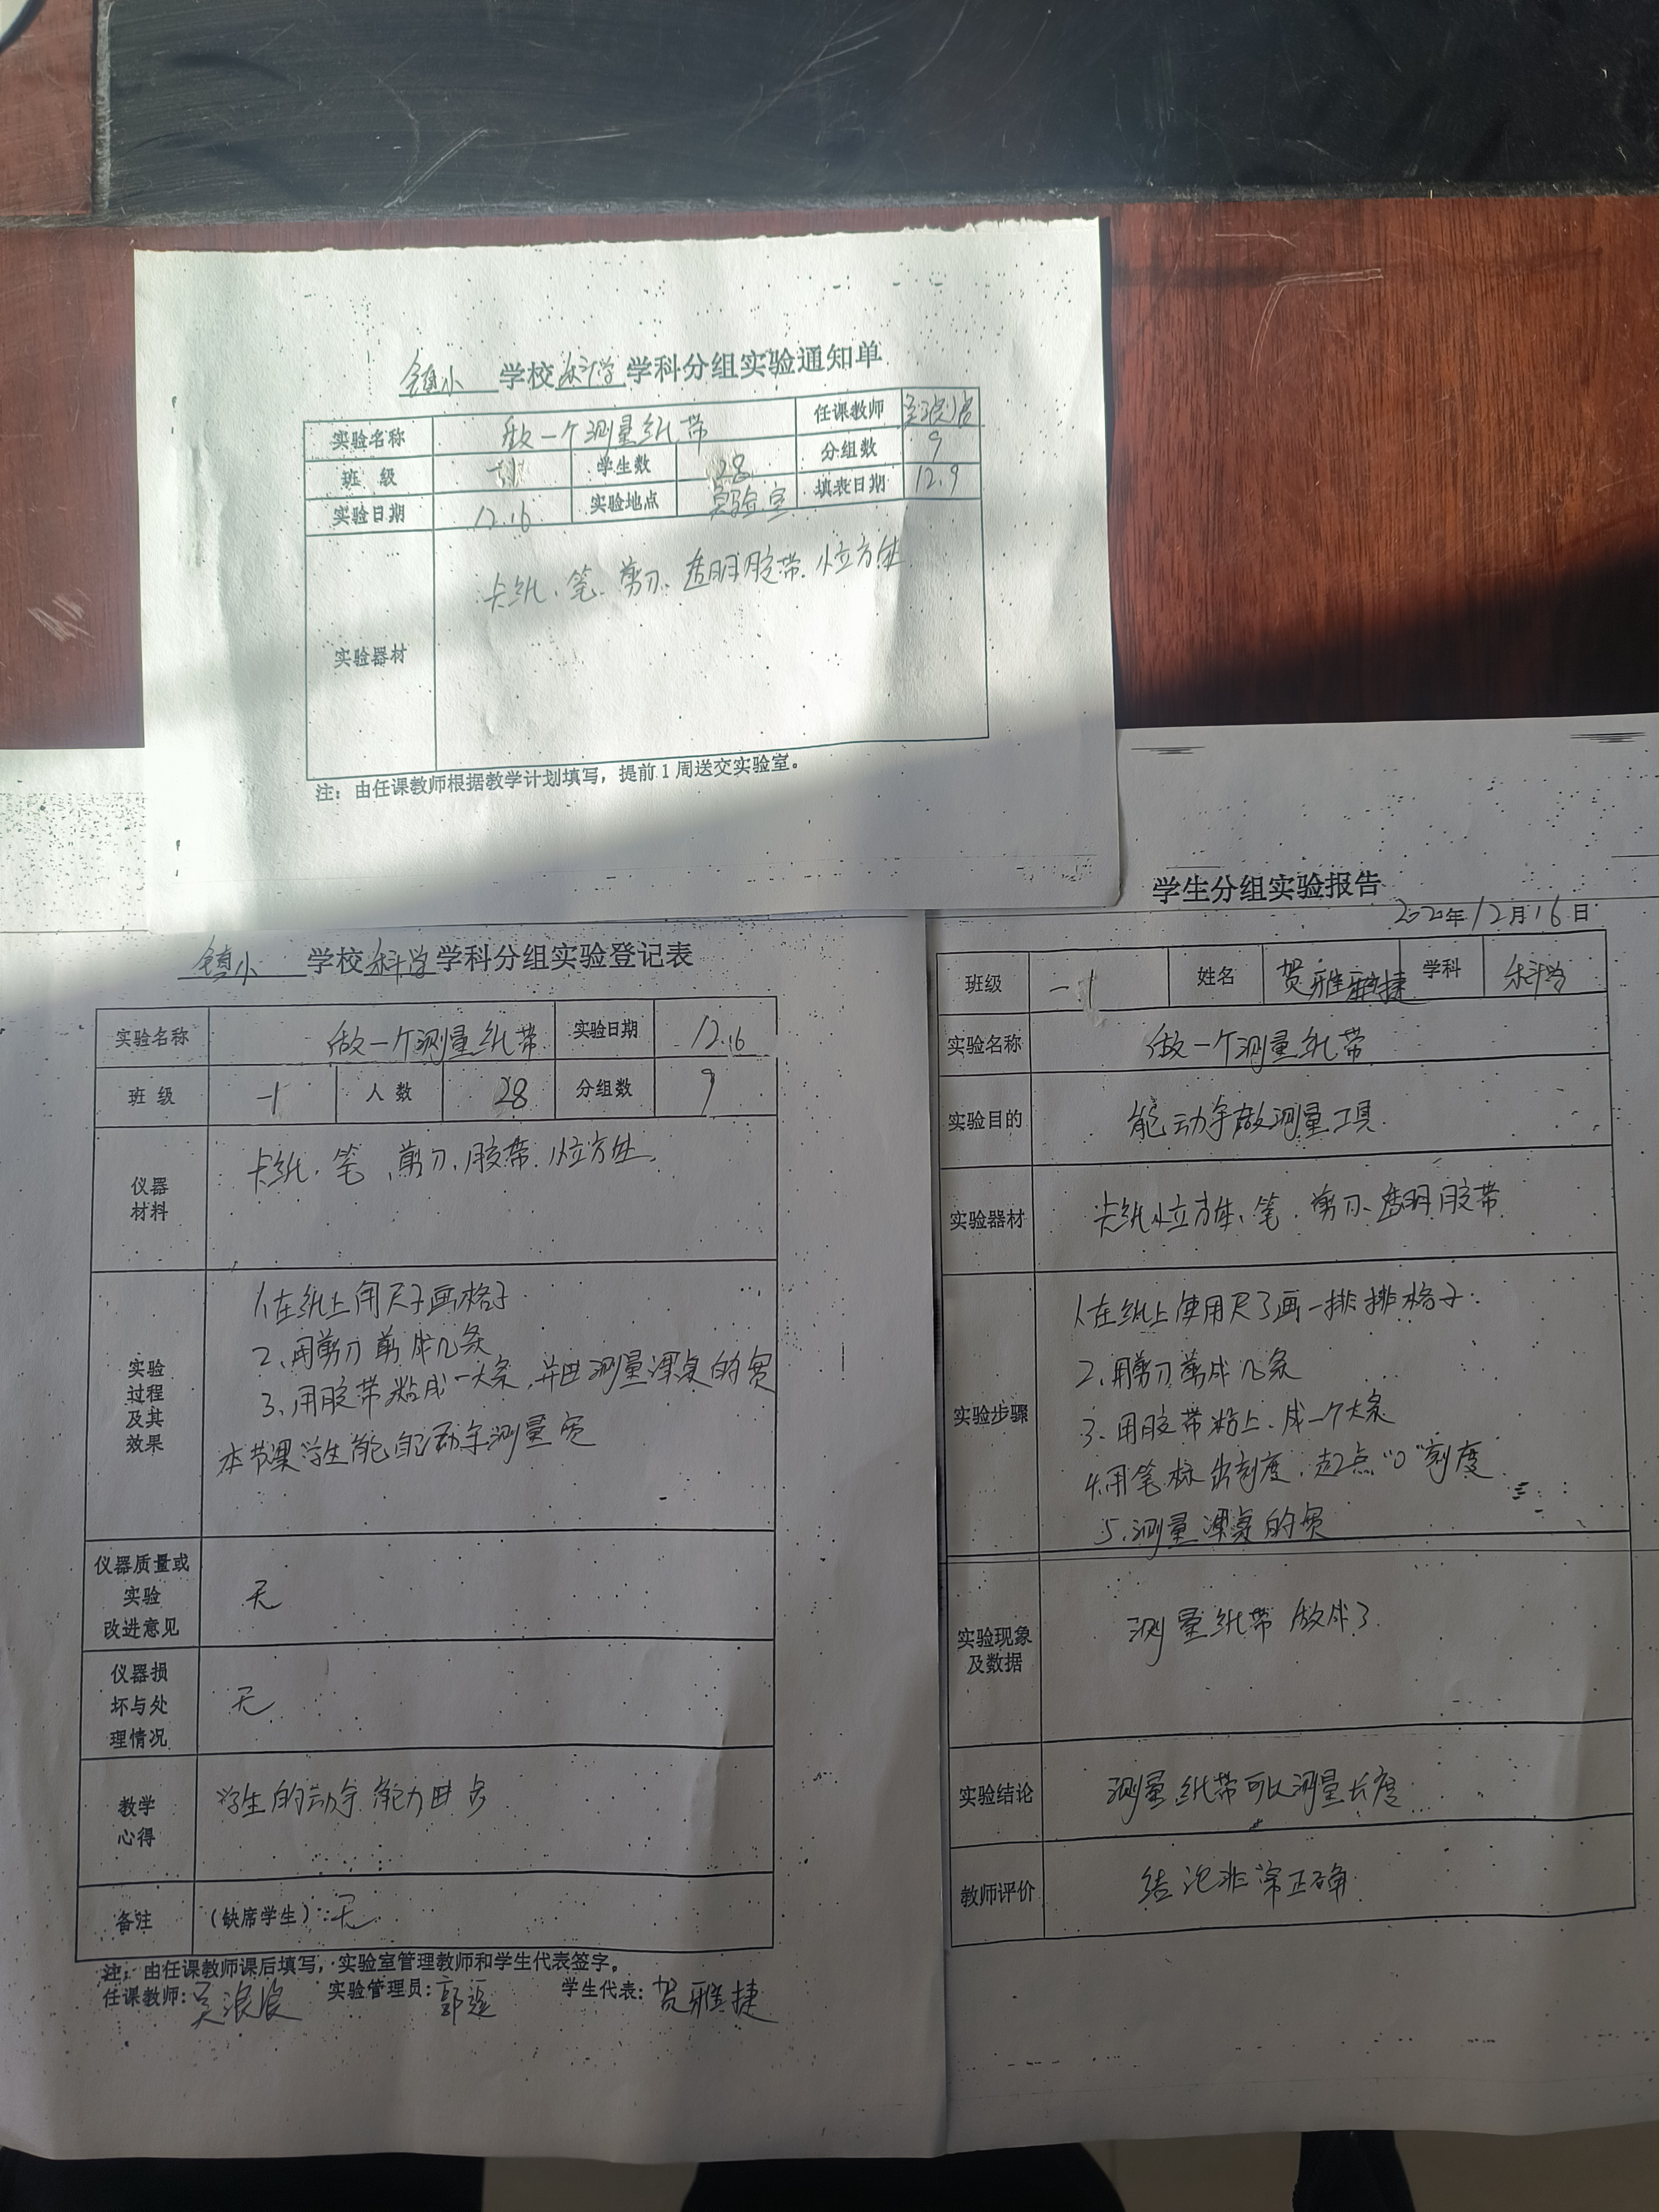 镇小 学校 科学 学科分组实验通知单
实验名称 做一个测量纸带 任课教师 吴浪浪
班 级 一1 学生数 28 分组数 9
实验日期 12.16 实验地点 实验室 填表日期 12.9
实验器材 卡纸、笔、剪刀、透明胶带、小立方体
注：由任课教师根据教学计划填写，提前1周送交实验室。
镇小 学校 科学 学科分组实验登记表
实验名称 做一个测量纸带 实验日期 12.16
班 级 一1 人 数 28 分组数 9
仪器材料 卡纸、笔、剪刀、胶带、小立方体。
实验过程及其效果
1、在纸上用尺子画格子
2、用剪刀剪成几条
3、用胶带粘成一大条，并且测量课桌的宽
本节课学生能自己动手测量宽
仪器质量或实验改进意见 无
仪器损坏与处理情况 无
教学心得 学生的动手能力
备注 （缺席学生）：无
注：由任课教师课后填写，实验室管理教师和学生代表签字。
任课教师：吴浪浪 实验管理员：郭 学生代表：贺雅捷
学生分组实验报告
2020年12月16日
班级 一1 姓名 贺雅捷 学科 科学
实验名称 做一个测量纸带
实验目的 能动手做测量工具
实验器材 卡纸小立方体、笔、剪刀、透明胶带
实验步骤
1、在纸上使用尺子画一排排格子：
2、用剪刀剪成几条
3、用胶带粘上、成一个大条
4、用笔标出刻度，起点“0”刻度
5、测量课桌的宽
实验现象及数据 测量纸带做成了
实验结论 测量纸带可以测量长度
教师评价 结论非常正确